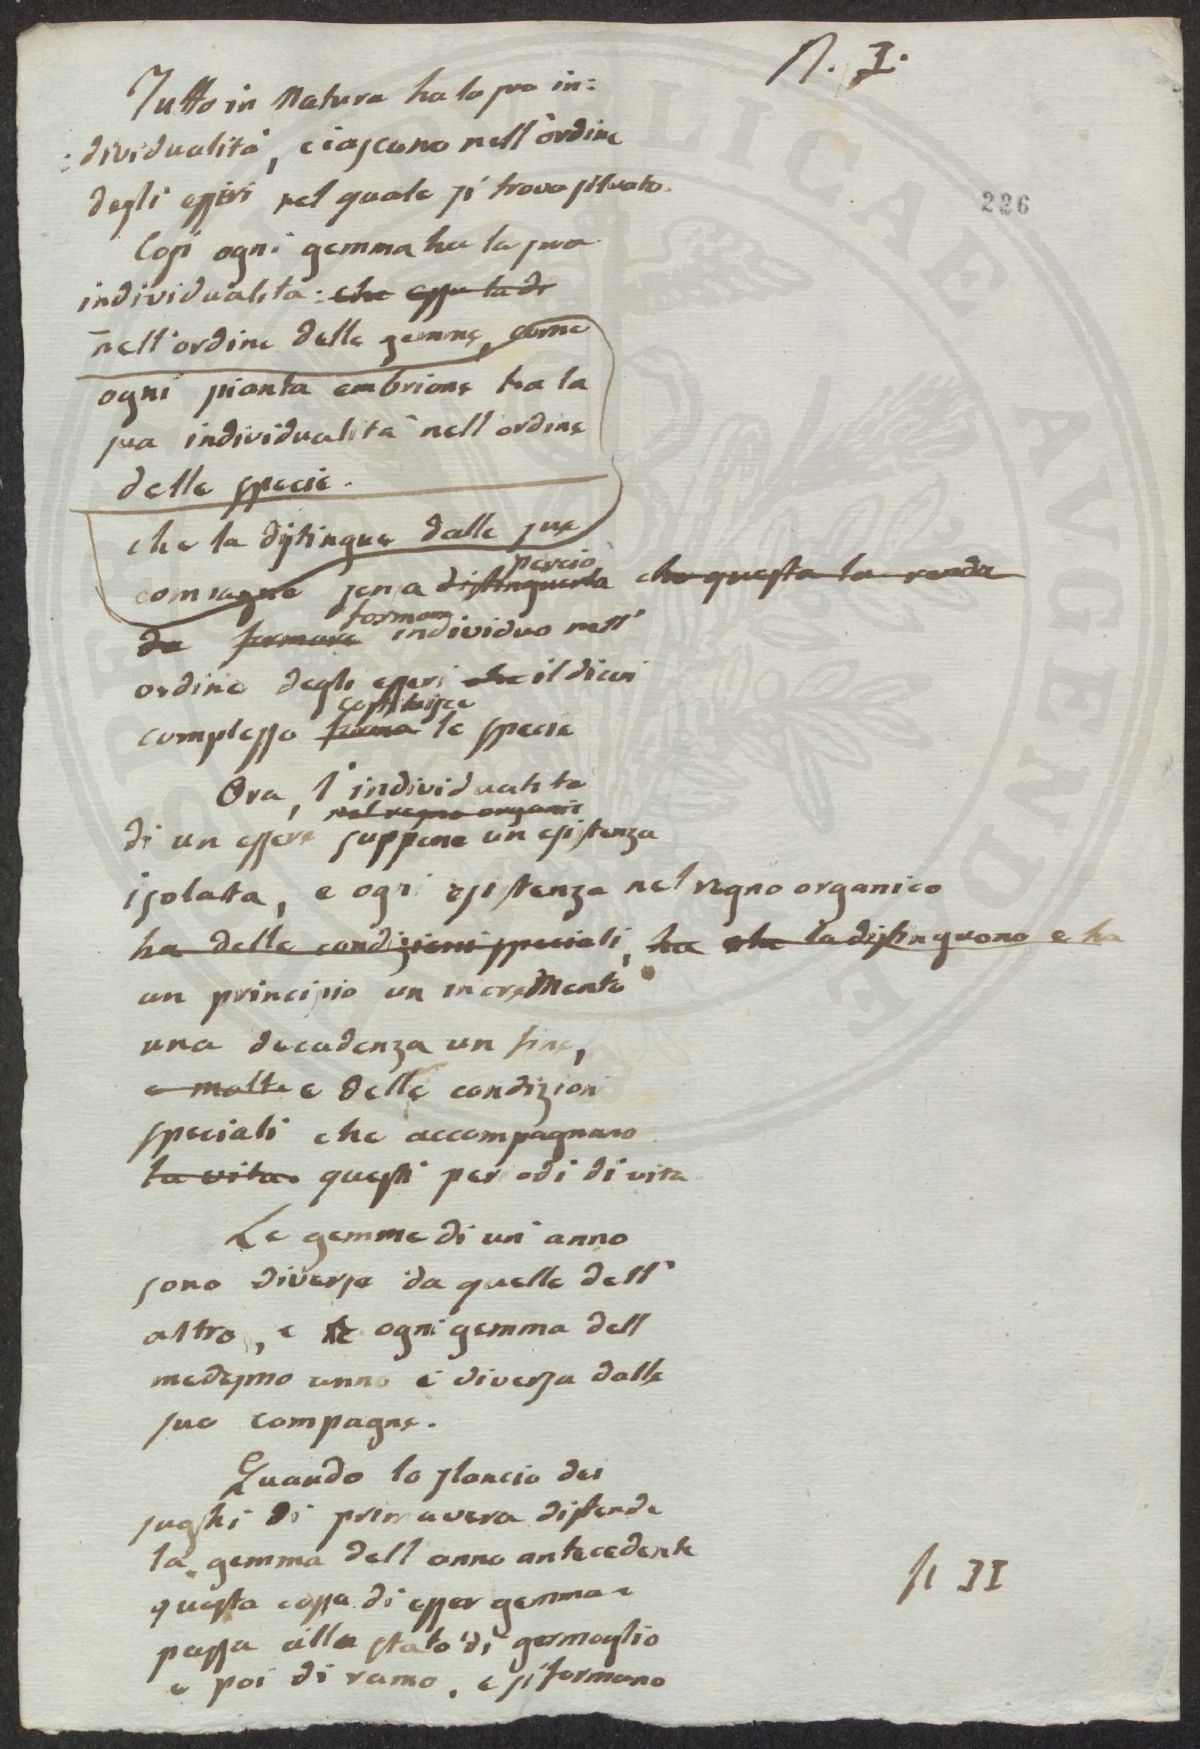 N. I.
Tutto in Natura ha la sua in=
:dividualità, ciascuno nell'ordine
degli esseri nel quale si trova situato.
226
Così ogni gemma ha la sua
individualità: che essa la di
nell'ordine delle gemme, come
ogni pianta embrione ha la
sua individualità nell'ordine
delle specie.
che la distingue dalle sue
compagne senza distinguerla perciò che questa la renda
da formare formano individuo nell'
ordine degli esseri che il di cui
complesso forma costituisce le specie
Ora, l'individualità
nel regno organico
di un essere suppone un esistenza
isolatta, e ogni esistenza nel regno organico
ha delle condizioni speciali, ha che la distinguono e ha
un principio un incremento
una decadenza un fine,
e molte e delle condizioni
speciali che accompagnano
la vita. questi periodi di vita
Le gemme di un anno
sono diverse da quelle dell'
altro, e le ogni gemma dell
medesmo anno è diversa dalle
sue compagne.
Quando lo slancio dei
sughi di primavera distende
la gemma dell anno antecedente
questa cessa di esser gemma e
passa alla stato di germoglio
e poi di ramo, e si formano
N II